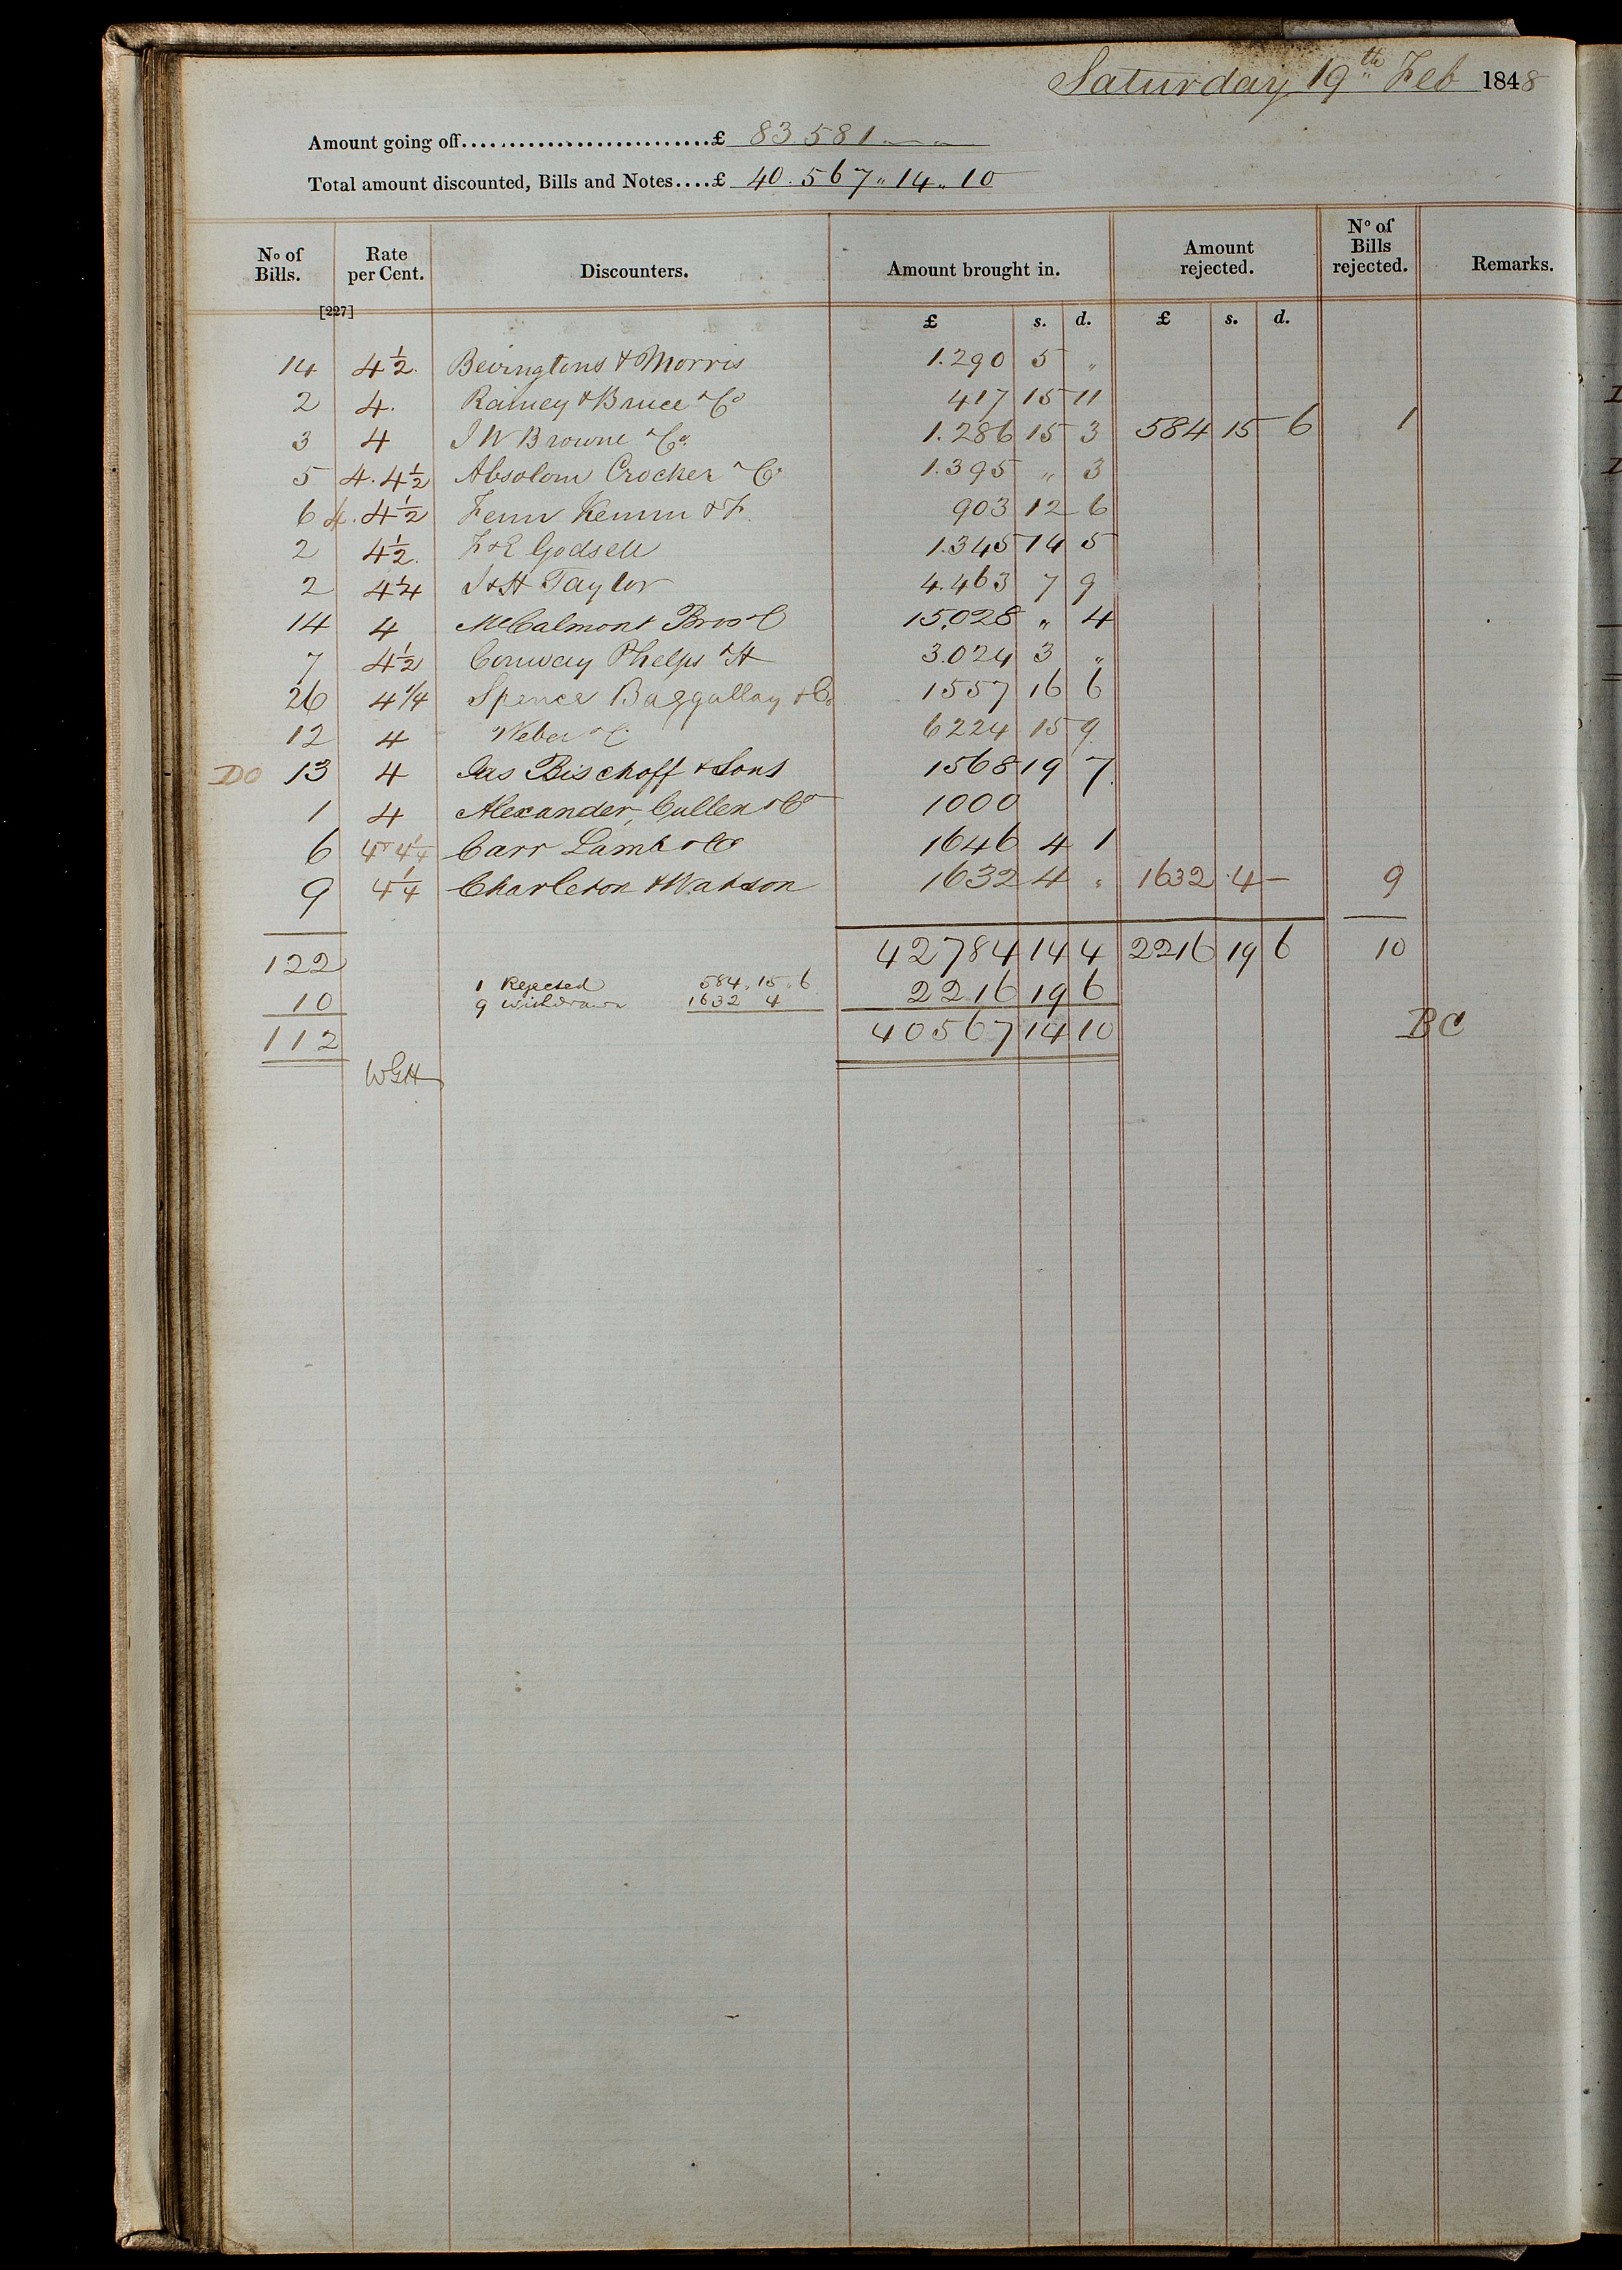 Saturday 19th Feb 1848
Amount going off...........................£ 83.581 " "
Total amount discounted, Bills and Notes....£ 40.567 " 14 " 10
No of Bills. Rate per Cent. Discounters. Amount brought in. Amount rejected. No of Bills rejected. Remarks.
[227]
£ s. d. £ s. d.
14 4½ Bevingtons & Morris 1.290 5 "
2 4. Rainey & Bruce & Co 417 15 11
3 4 J W Browne & Co 1.286 15 3 584 15 6 1
5 4.4½ Absolom Crocker & Co 1.395 " 3
6 4.4½ Fenn Kemm & F. 903 12 6
2 4½. F & E Godsell 1.345 14 5
2 4¼ J & H Taylor 4.463 7 9
14 4 McCalmont Bros & C 15,028 " 4
7 4½ Conway Phelps & H 3.024 3 "
26 4¼ Spence Baggallay & Co 1557 16 6
12 4 Weber & C 6224 15 9
DO 13 4 Jas Bischoff & Sons 1568 19 7
1 4 Alexander, Cullen & Co 1000
6 4 & 4¼ Carr Lamb & Co 1646 4 1
9 4¼ Charleton & Watson 1632 4 " 1632 4 – 9
122 42784 14 4 2216 19 6 10
10 1 Rejected 584 " 15 " 6 2216 19 6
9 withdrawn 1632 4
112 40567 14 10 BC
WGH